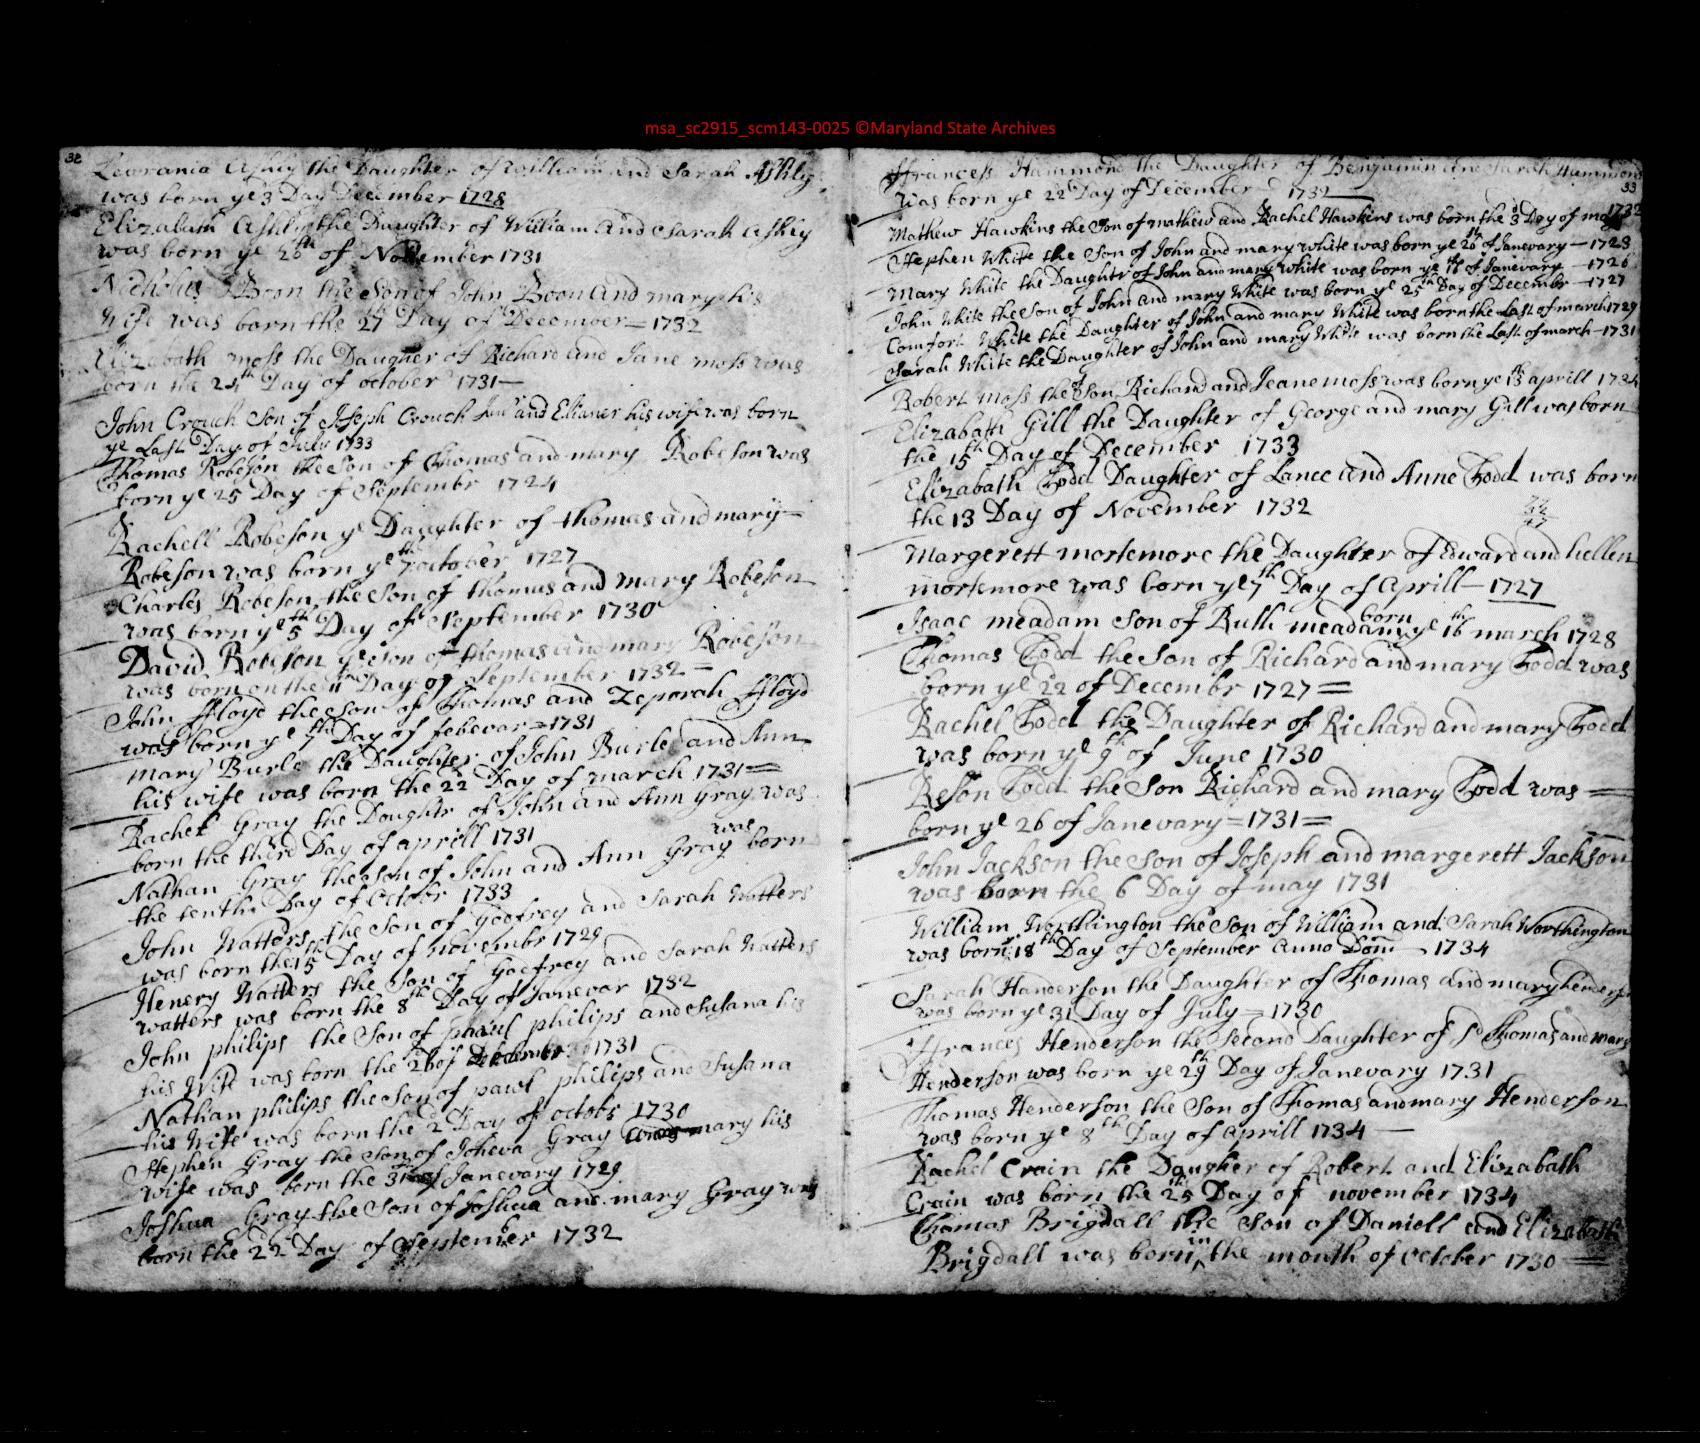 msa_sc2915_scm143-0025 ©Maryland State Archives
32
Leurania Ashly the Daughter of William and Sarah Ashly
was born ye 3 Day December 1728
Elizabath Ashly the Daughter of William and Sarah Ashly
was born ye 26th of November 1731
Nicholus Boon the Son of John Boon and mary his
Wife was born the 27 Day of December = 1732
Elizabath moss the Daugher of Richard and Jane moss was
born the 24th Day of october 1731 —
John Crouch Son of Joseph Crouch Junr and Elianer his wife was born
ye Last Day of July 1733
Thomas Robeson the Son of Thomas and mary Robeson was
born ye 25 Day of Septembr 1724
Rachell Robeson ye Daughter of thomas and mary
Robeson was born ye 7th october 1727
Charles Robeson the Son of thomas and mary Robeson
was born ye 5th Day of September 1730
David Robeson ye Son of thomas and mary Robeson
was born on the 11th Day of September 1732 =
John ffloyd the Son of Thomas and Zeporah ffloyd
was born ye 7th Day of febevar = 1731
mary Burle the Daughter of John Burle and Ann
his wife was born the 22 Day of march 1731 =
Rachel Gray the Doughtr of John and Ann Gray was
born the third Day of aprill 1731
Nathan Gray the Son of John and Ann Gray was born
the tenth Day of Octobr 1733
John Watters the Son of Godfrey and Sarah Watters
was born the 15th Day of Novembr 1729
Henery Watters the Son of Godfrey and Sarah Watters
watters was born the 8th Day of Janevar 1732
John philips the Son of paul philips and Susana his
his Wife was born the 26 of December 1731
Nathan philips the Son of pawl philips and Susana
his Wife was born the 2d Day of octobr 1730
Stephen Gray the Son of Joheva Gray was mary his
wife was born the 31 of Janevary 1729
Joshua Gray the Son of Joshua and mary Gray was
born the 22 Day of September 1732
ffrancess Hammond the Daughter of Benjamin and Sarah Hummond
33
was born ye 22 Day of December 1732
Mathew Hawkins the Son of mathew and Rachel Hawkins was born the 3d Day of may 1732
Stephen White the Son of John and mary white was born ye 26th of Janevary — 1723
Mary White the Daughtr of John and mary white was born ye 16 of Janevary — 1726
John White the Son of John and mary White was born ye 25th Day of Decembr — 1727
Comfort White the Daughter of John and mary White was born the Last of march 1729
Sarah White the Daughter of John and mary White was born the Last of march — 1731
Robert moss the Son Richard and Jeane moss was born ye 13th aprill 1734
Elizabath Gill the Daughter of George and mary Gill was born
the 15th Day of December 1733
Elizabath Todd Daughter of Lance and Anne Todd was born
the 13 Day of November 1732
Margerett mortemore the Daughter of Edward and hellen
mortemore was born ye 7th Day of Aprill — 1727
Isaac meadam Son of Ruth meadam born ye 16th march 1728
Thomas Todd the Son of Richard and mary Todd was
born ye 22 of Decembr 1727 =
Rachel Todd the Daughter of Richard and mary Todd
was born ye 9th of June 1730
Reson Todd the Son Richard and mary Todd was =
born ye 26 of Janevary = 1731 =
John Jackson the Son of Joseph and margerett Jackson
was born the 6 Day of may 1731
William Worthington the Son of William and Sarah Worthington
was born 18th Day of September Anno Dom 1734
Sarah Handerson the Daughter of Thomas and mary henderson
was born ye 31 Day of July = 1730
Ffrances Henderson the Second Daughter of Sd Thomas and mary
Henderson was born ye 29th Day of Janevary 1731
Thomas Henderson the Son of Thomas and mary Henderson
was born ye 8th Day of Aprill 1734 —
Rachel Crain the Daugher of Robert and Elizabath
Crain was born the 25th Day of november 1734
Thomas Brigdall the Son of Daniell and Elizabath
Brigdall was born in the month of October 1730 =